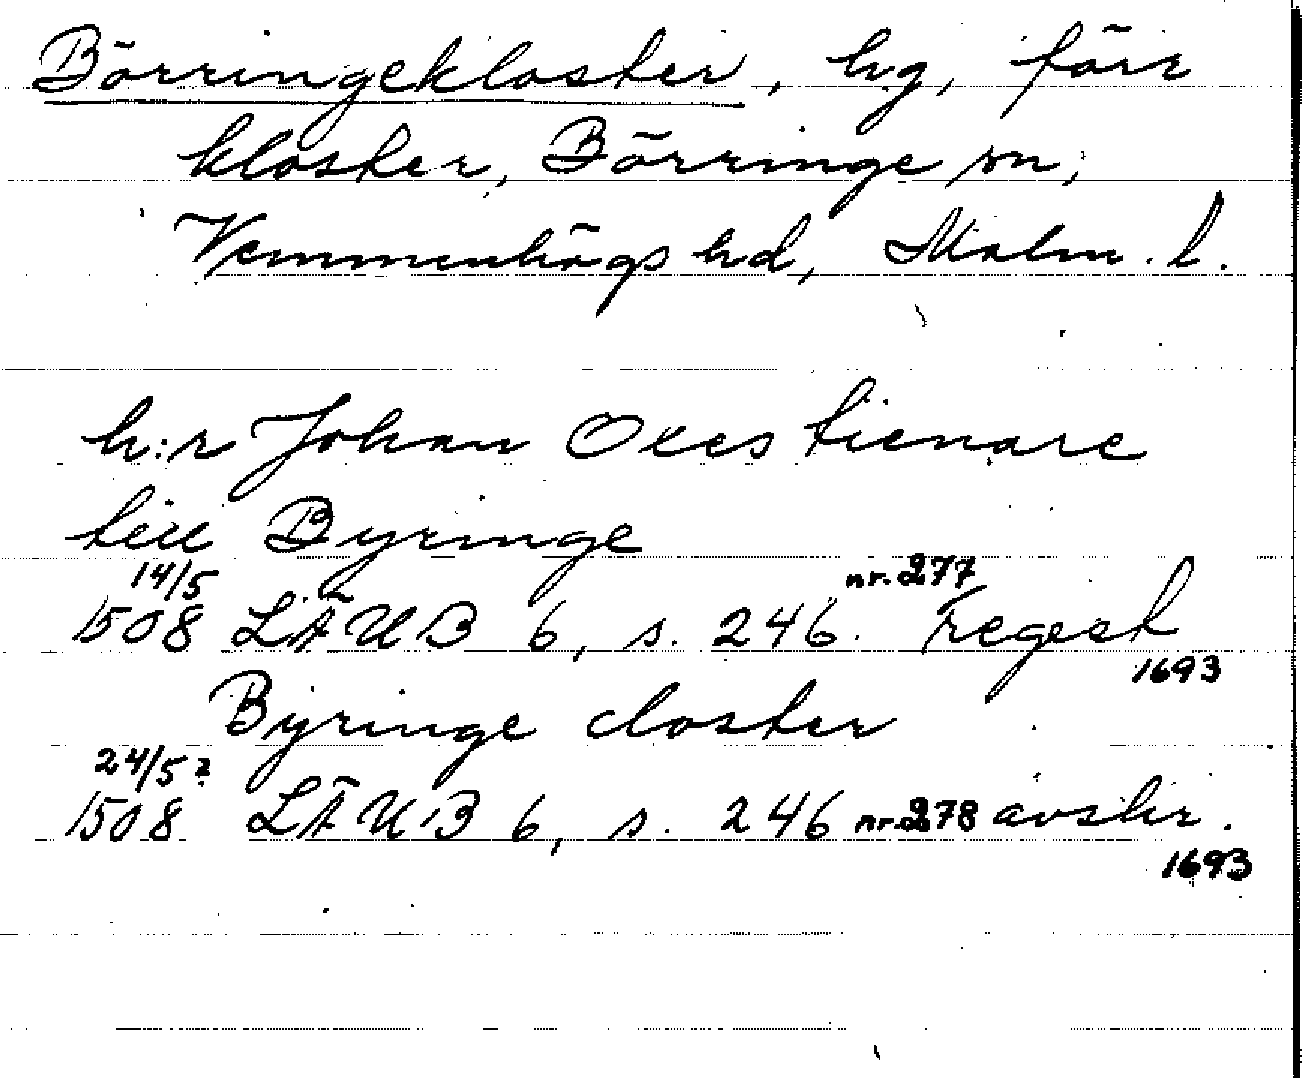 Börringekloster, hg, förr
kloster, Börringe sn,
Vemmenhögs hd, Malm. l.
h:r Johan Oxes tienare
till Byringe
14/5 nr. 277
1508 LÄUB 6, s. 246. Regest
1693
Byringe closter
24/5?
1508 LÄUB 6, s. 246 nr. 278 avskr.
1693